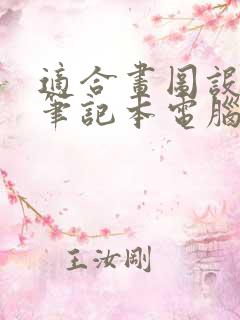 適合畫圖設
筆記本電腦
王汝剛